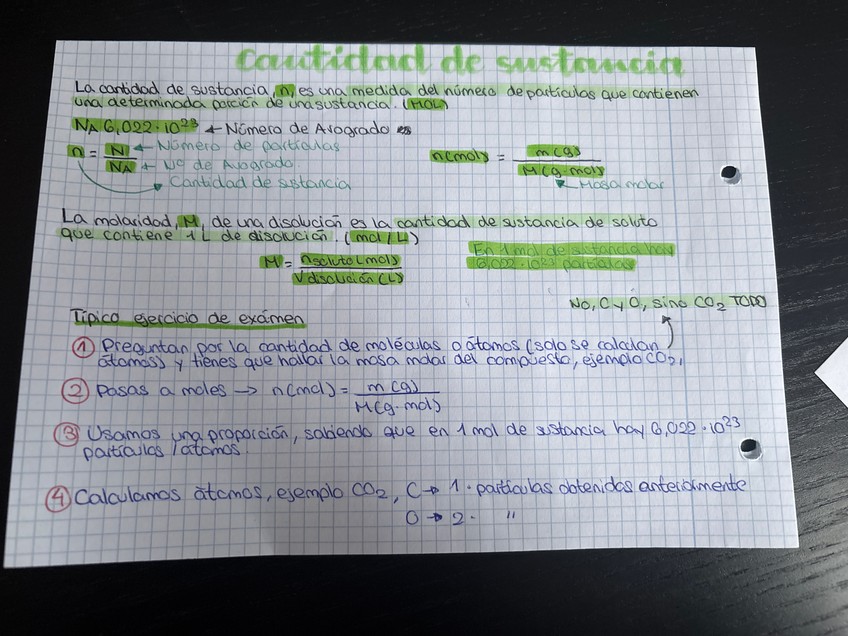 Cantidad de sustancia
La cantidad de sustancia, n, es una medida del número de partículas que contienen
una determinada porción de una sustancia. (MOL)
NA 6,022·10²³ ← Número de Avogrado
n = N ← Número de partículas
NA ← Nº de Avogrado
Cantidad de sstancia
n(mol) = m(g)
M(g·mol)
Masa molar
La molaridad, M, de una disolución es la cantidad de sustancia de soluto
que contiene 1L de disolución. (mol/L)
M = nsoluto(mol)
Vdisolución(L)
En 1 mol de sustancia hay
6,022·10²³ partículas
No, C y O, sino CO₂ TODO
Típico ejercicio de exámen
① Preguntan por la cantidad de moléculas o átomos (solo se calculan
átomos) y tienes que hallar la masa molar del compuesto, ejemplo CO₂,
② Pasas a moles → n(mol) = m(g)
M(g·mol)
③ Usamos una proporción, sabiendo que en 1 mol de sustancia hay 6,022·10²³
partículas/átomos.
④ Calculamos átomos, ejemplo CO₂, C → 1· partículas obtenidas anteriormente
O → 2· "